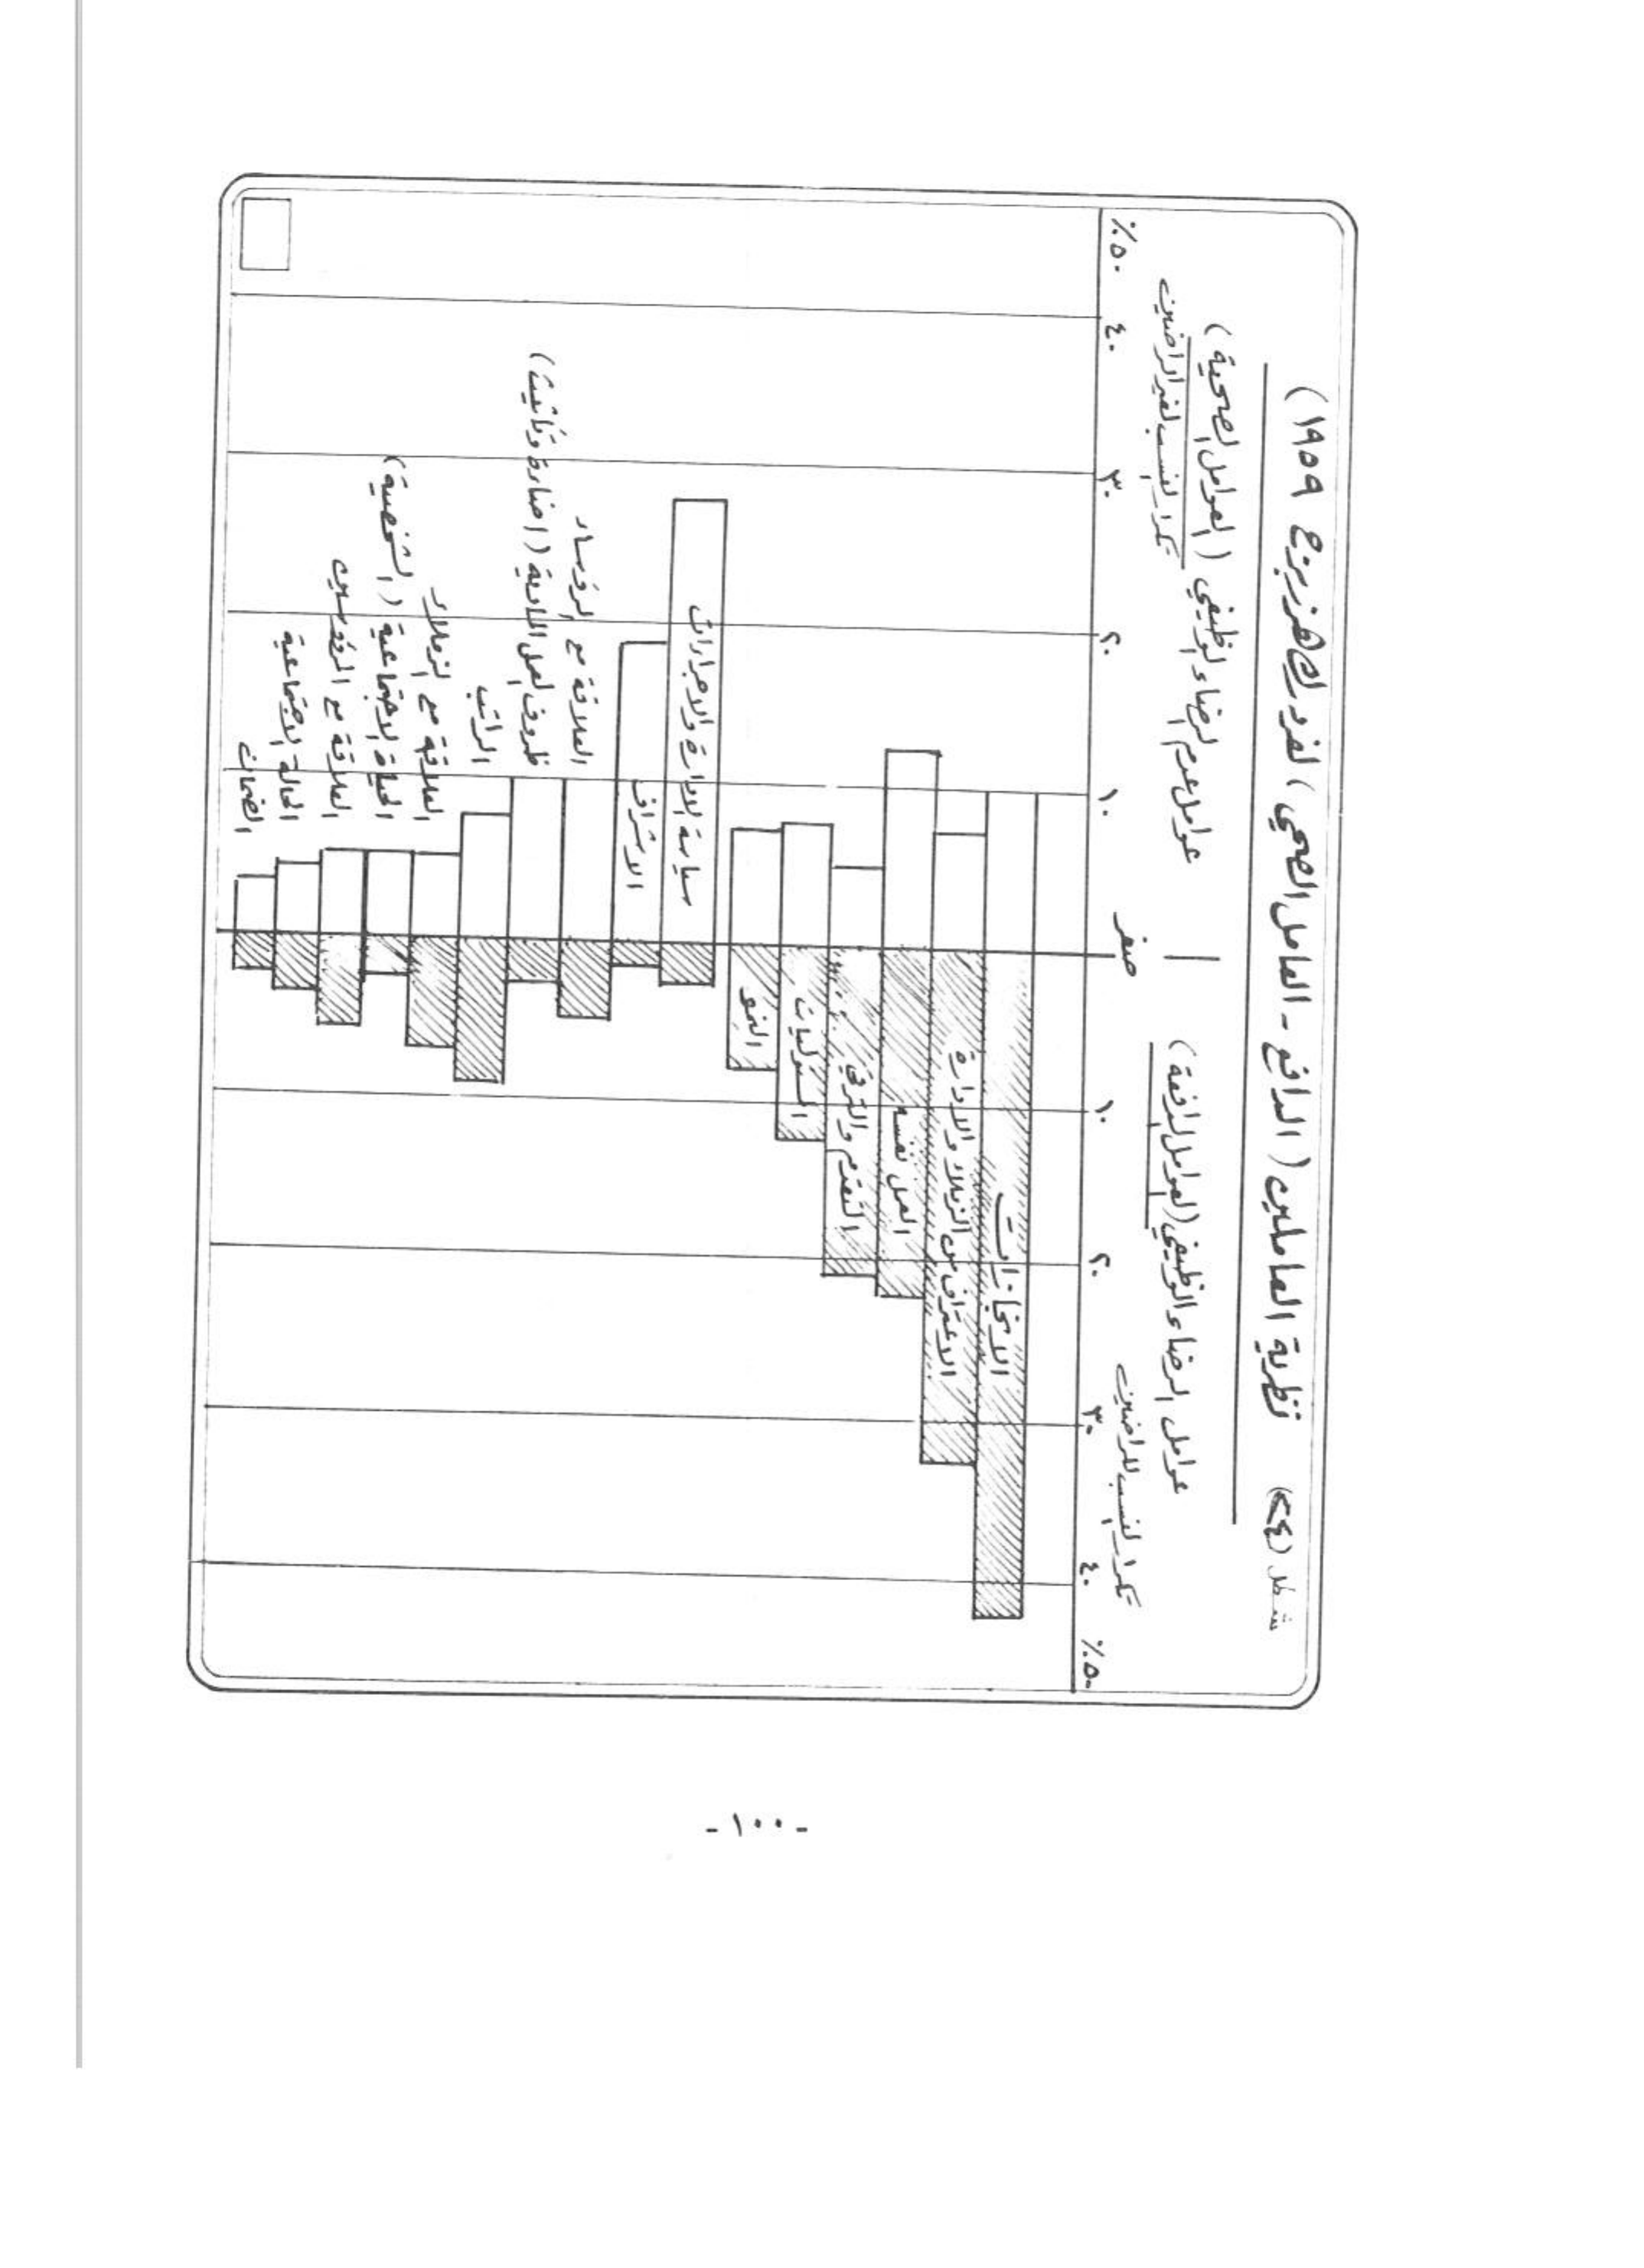 شكل (٢٤) نظرية العاملين (الدافع - العامل الصحي) لفردريك هزبرج ١٩٥٩)
عوامل الرضاء الوظيفي (العوامل الدافعة)
عوامل عدم الرضاء الوظيفي (العوامل الصحية)
تكرار النسب للراضين
تكرار النسب لغير الراضين
٥٠٪ ٤٠ ٣٠ ٢٠ ١٠ صفر ١٠ ٢٠ ٣٠ ٤٠ ٥٠٪
الانجازات
الاعتراف من الزملاء والادارة
العمل نفسه
التقدم والترقي
النمو
سياسة الادارة والاجراءات
الاشراف
العلاقة مع الرؤساء
ظروف العمل المادية (اضاءة وتأثيث)
الراتب
العلاقة مع الزملاء
الحياة الاجتماعية (الشخصية)
العلاقة مع المرؤوسين
الحالة الاجتماعية
الضمان
- ١٠٠ -